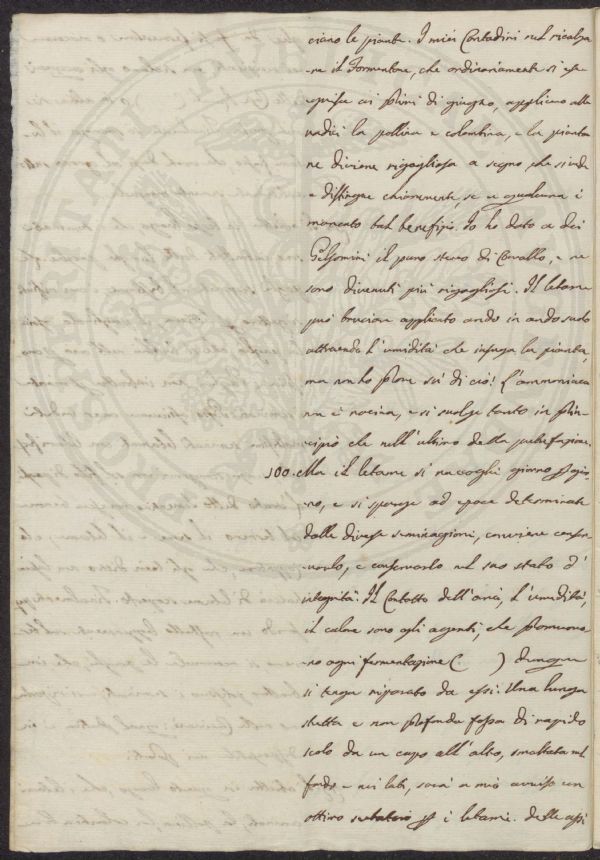 ciano le piante. I miei Contadini nel rincalza
re il Formentone, che ordinariamente si ese
guisce ai primi di giugno, applicano alle
radici la pollina e colombina, e la pianta
ne diviene rigogliosa a segno, che si vede
e distingue chiaramente, se a qualcuna è
mancato tal benefizio. Io ho dato a dei
Gelsomini il puro sterco di Cavallo, e ne
sono divenuti più rigogliosi. Il letame
può bruciare applicato ando in ando suolo
attraendo l'umidità che insuga la pianta,
ma non ho prove di ciò! L'ammoniaca
non è nociva, e si svolge tanto in prin
cipio che nell'ultimo della putrefazione.
100. Ma il letame si raccoglie giorno per gior
no, e si sparge ad epoce determinate
dalle diverse seminagioni, conviene conser
varlo, e conservarlo nel suo stato d'
integrità. Il Contatto dell'aria, l'umidità,
il calore sono gli agenti, che promuovo
no ogni fermentazione ( ) dunque
si tenga riparato da essi. Una lunga
stretta e non profonda fossa di rapido
scolo da un capo all'altro, smaltata nel
fondo e nei lati, sarà a mio avviso un
ottimo serbatoio per i letami. Delle assi